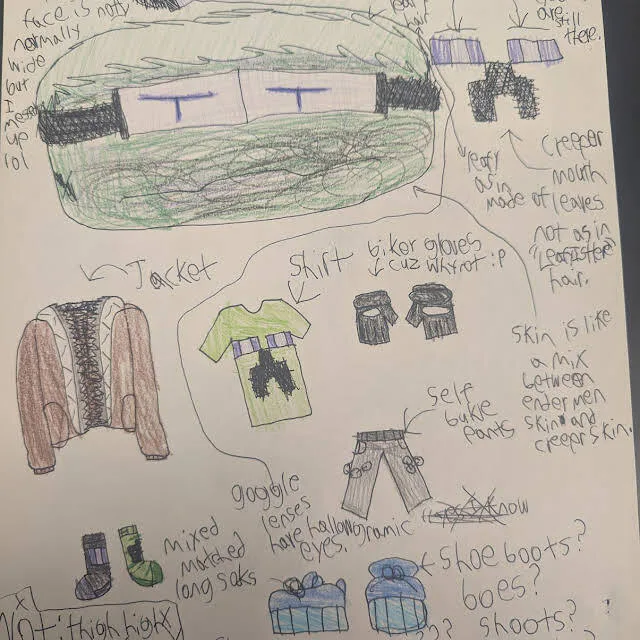 face is not
normally
wide
but
I
messed
up
lol
hair.
are
still
there.
leafy
as in
made of leaves
creeper
mouth
not as in
hair.
Jacket
Shirt
biker gloves
cuz why not :P
skin is like
a mix
between
endermen
skin and
creepr skin.
self
bukle
pants
know
goggle
lenses
have hallowgramic
eyes.
mixed
matched
long soks
shoe boots?
boes?
shoots?
Not: thigh high